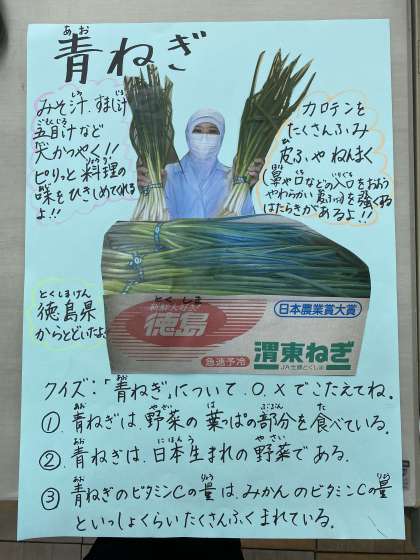 青ねぎ
みそ汁、すまし汁
五目汁など
大かつやく!!
ピリッと料理の
味をひきしめてくれる
よ!!
カロテンを
たくさんふくみ
皮ふやねんまく
(鼻や口などの入口をおおう
やわらかい皮ふ)を強くする
はたらきがあるよ!!
徳島県
からとどいたよ
新鮮大好き
とくしま
徳島
急速予冷
日本農業賞大賞
渭東ねぎ
JA全農とくしま
クイズ:「青ねぎ」について、〇、×でこたえてね。
① 青ねぎは、野菜の葉っぱの部分を食べている。
② 青ねぎは、日本生まれの野菜である。
③ 青ねぎのビタミンCの量は、みかんのビタミンCの量
といっしょくらいたくさんふくまれている。